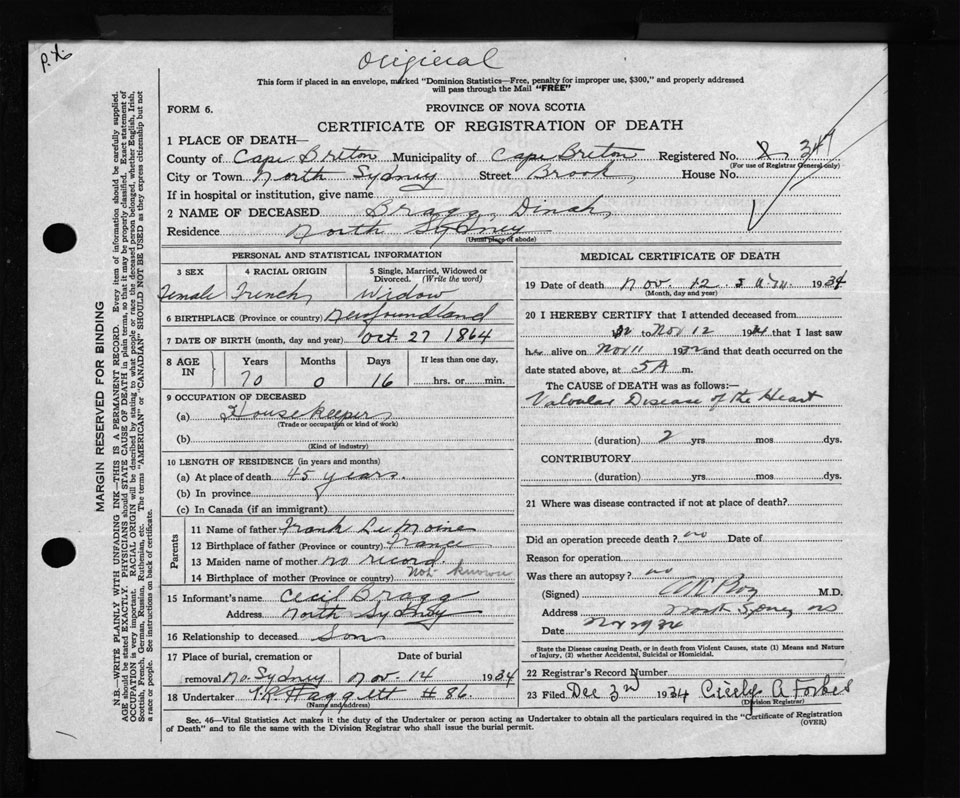 P.X.
Original
This form if placed in an envelope, marked "Dominion Statistics—Free, penalty for improper use, $300," and properly addressed
will pass through the Mail "FREE"
FORM 6.
PROVINCE OF NOVA SCOTIA
CERTIFICATE OF REGISTRATION OF DEATH
1 PLACE OF DEATH—
County of Cape Breton Municipality of Cape Breton Registered No. 349
(For use of Registrar General only)
City or Town North Sydney Street Brook House No.
If in hospital or institution, give name
2 NAME OF DECEASED Bragg, Dinah
Residence North Sydney
(Usual place of abode)
PERSONAL AND STATISTICAL INFORMATION
3 SEX 4 RACIAL ORIGIN 5 Single, Married, Widowed or Divorced. (Write the word)
Female French Widow
6 BIRTHPLACE (Province or country) Newfoundland
7 DATE OF BIRTH (month, day and year) Oct. 27 1864
8 AGE IN Years Months Days If less than one day,
70 0 16 hrs. or min.
9 OCCUPATION OF DECEASED
(a) Housekeeper
(Trade or occupation or kind of work)
(b)
(Kind of industry)
10 LENGTH OF RESIDENCE (in years and months)
(a) At place of death 45 years.
(b) In province
(c) In Canada (if an immigrant)
Parents
11 Name of father Frank Le Moine
12 Birthplace of father (Province or country) France
13 Maiden name of mother no record.
14 Birthplace of mother (Province or country) Not known
15 Informant's name Cecil Bragg
Address North Sydney
16 Relationship to deceased Son
17 Place of burial, cremation or Date of burial
removal No. Sydney Nov. 14 1934
18 Undertaker T.R. Haggett # 86.
(Name and address)
MEDICAL CERTIFICATE OF DEATH
19 Date of death Nov. 12 1934
(Month, day and year)
20 I HEREBY CERTIFY that I attended deceased from
to Nov 12 19 that I last saw
her alive on Nov 11 19 and that death occurred on the
date stated above, at 5 A m.
The CAUSE of DEATH was as follows:—
Valvular Disease of the Heart
(duration) 2 yrs mos dys.
CONTRIBUTORY
(duration) yrs. mos. dys.
21 Where was disease contracted if not at place of death?
Did an operation precede death? no Date of
Reason for operation
Was there an autopsy? no
(Signed) M.D.
Address North Sydney NS
Date Nov 29 34
State the Disease causing Death, or in death from Violent Causes, state (1) Means and Nature
of Injury, (2) whether Accidental, Suicidal or Homicidal.
22 Registrar's Record Number
23 Filed Dec 3rd 1934 Cicely A Forbes
(Division Registrar)
Sec. 46—Vital Statistics Act makes it the duty of the Undertaker or person acting as Undertaker to obtain all the particulars required in the "Certificate of Registration
of Death" and to file the same with the Division Registrar who shall issue the burial permit.
(OVER)
MARGIN RESERVED FOR BINDING
N.B.—WRITE PLAINLY WITH UNFADING INK—THIS IS A PERMANENT RECORD. Every item of information should be carefully supplied.
AGE should be stated EXACTLY. PHYSICIANS should STATE CAUSE OF DEATH in plain terms, so that it may be properly classified. Exact statement of
OCCUPATION is very important. RACIAL ORIGIN will be described by stating to what people or race the deceased person belonged, whether English, Irish,
Scottish, French, German, Russian, Ruthenian, etc. The terms "AMERICAN" or "CANADIAN" SHOULD NOT BE USED as they express citizenship but not
a race or people. See instructions on back of certificate.